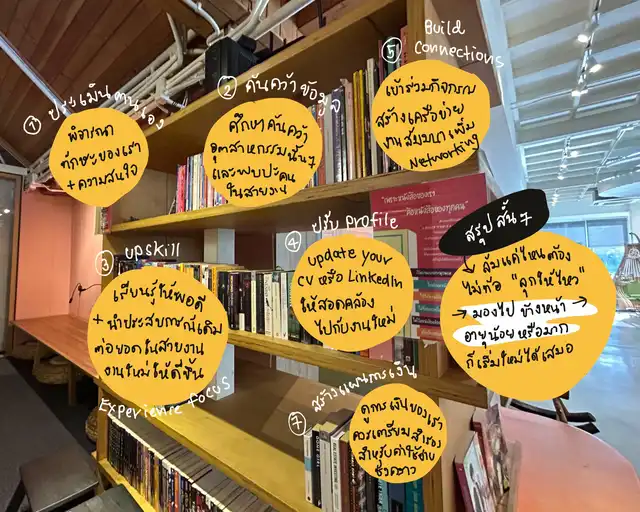 ① ประเมินตนเอง
พิจารณา
ทักษะของเรา
+ ความสนใจ
② ค้นคว้าข้อมูล
ศึกษาค้นคว้า
อุตสาหกรรมนั้นๆ
และพบปะคน
ในสายงาน
③ upskill
เรียนรู้ให้พอดี
+ นำประสบการณ์เดิม
ต่อยอดในสายงาน
งานใหม่ให้ดีขึ้น
Experience focus
④ ปรับ profile
update your
CV หรือ LinkedIn
ให้สอดคล้อง
ไปกับงานใหม่
⑤ Build
connections
เข้าร่วมกิจกรรม
สร้างเครือข่าย
งานสัมมนาเพิ่ม
Networking
⑦ สร้างแผนการเงิน
ดูการเงินของเรา
ควรเตรียมสำรอง
สำหรับค่าใช้จ่าย
ชั่วคราว
สรุปสั้นๆ
↘ ล้มแค่ไหนต้อง
ไม่ท้อ "ลุกให้ไหว"
→ มองไปข้างหน้า →
อายุน้อยหรือมาก
ก็เริ่มใหม่ได้เสมอ
"เพราะหนังสือของเรา
คือหนังสือของทุกคน"